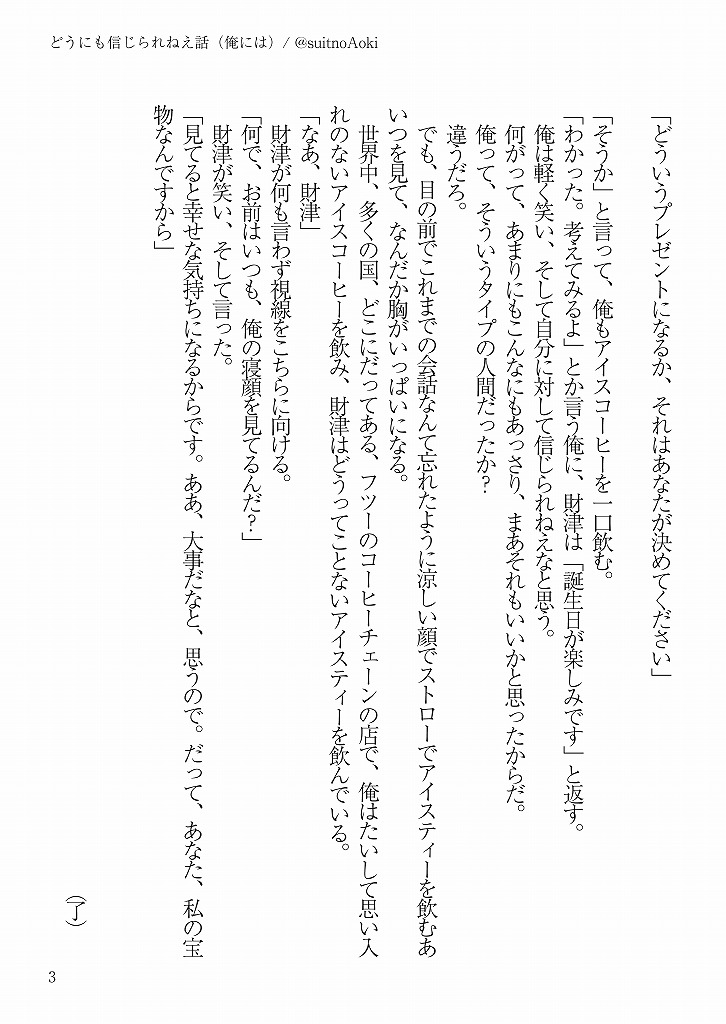 どうにも信じられねえ話（俺には）/ @suitnoAoki
「どういうプレゼントになるか、それはあなたが決めてください」
「そうか」と言って、俺もアイスコーヒーを一口飲む。
「わかった。考えてみるよ」とか言う俺に、財津は「誕生日が楽しみです」と返す。
俺は軽く笑い、そして自分に対して信じられねえなと思う。
何がって、あまりにもこんなにもあっさり、まあそれもいいかと思ったからだ。
俺って、そういうタイプの人間だったか？
違うだろ。
でも、目の前でこれまでの会話なんて忘れたように涼しい顔でストローでアイスティーを飲むあ
いつを見て、なんだか胸がいっぱいになる。
世界中、多くの国、どこにだってある、フツーのコーヒーチェーンの店で、俺はたいして思い入
れのないアイスコーヒーを飲み、財津はどうってことないアイスティーを飲んでいる。
「なあ、財津」
財津が何も言わず視線をこちらに向ける。
「何で、お前はいつも、俺の寝顔を見てるんだ？」
財津が笑い、そして言った。
「見てると幸せな気持ちになるからです。ああ、大事だなと、思うので。だって、あなた、私の宝
物なんですから」
（了）
3